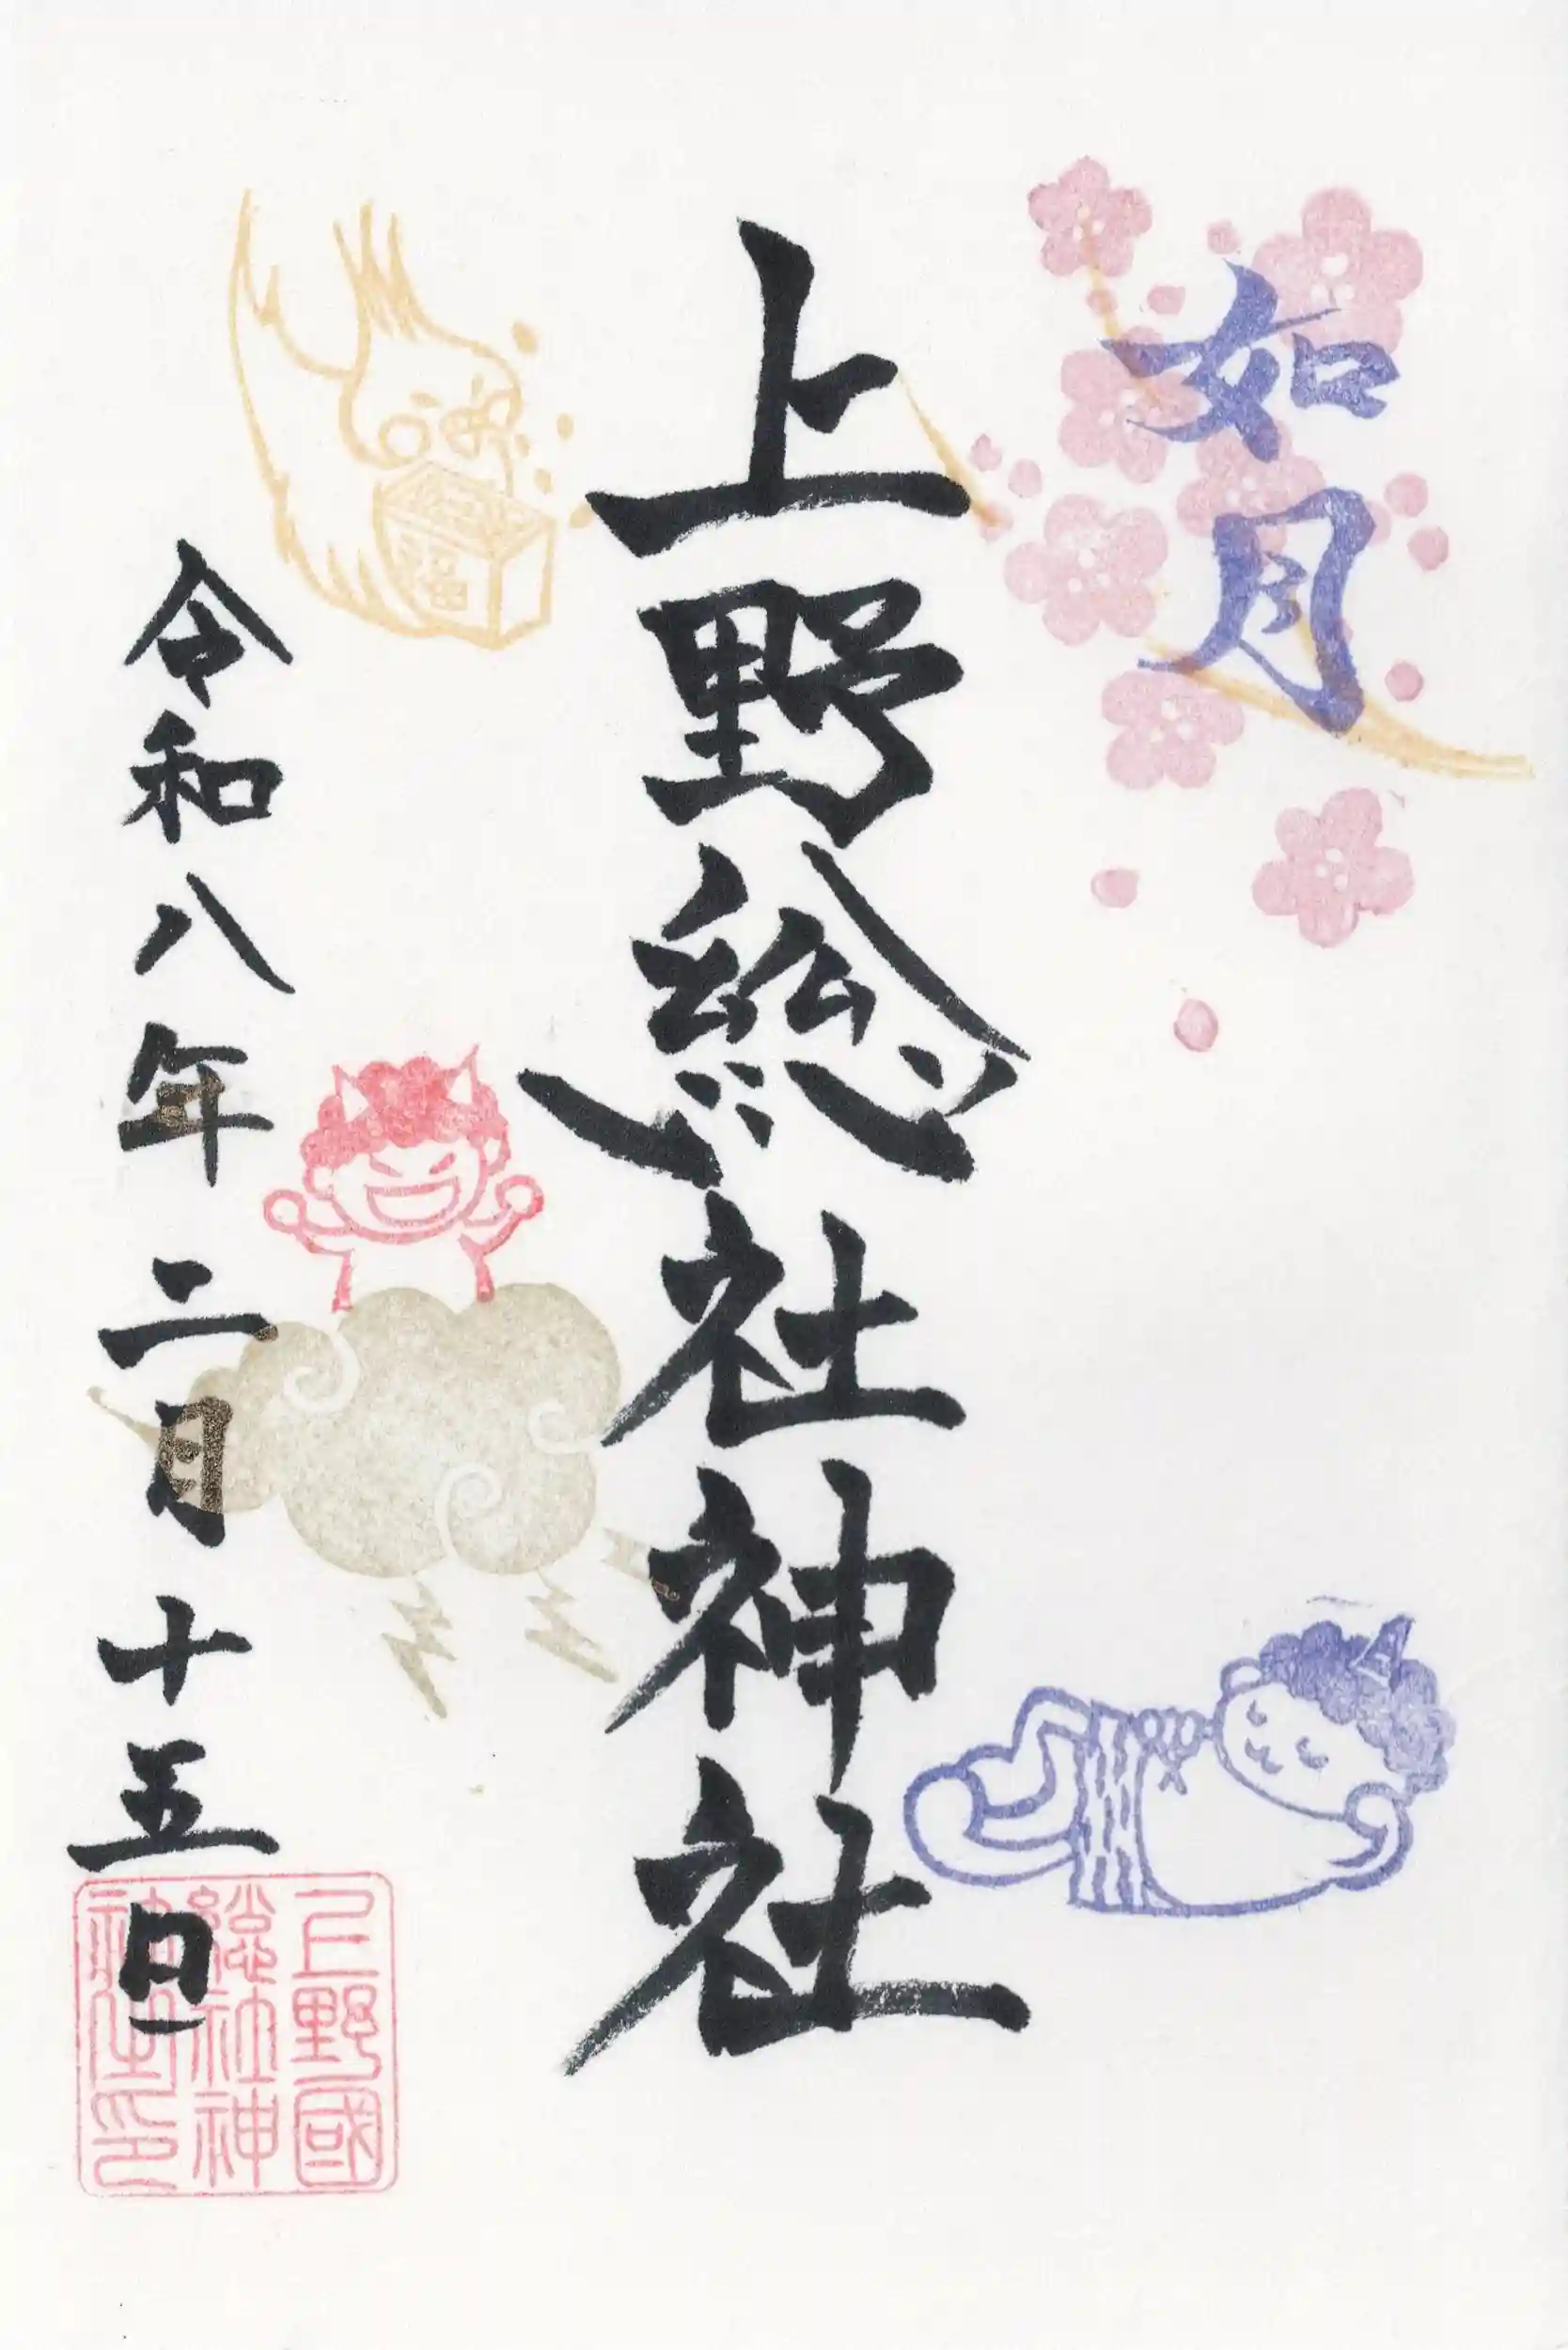 如月
上野総社神社
令和八年二月十五日
福
上野國
総社神
社之印